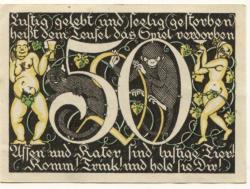 Lustig gelebt und seelig gestorben
heißt dem Teufel das Spiel verdorben
50
Affen und Kater sind lustige Tier!
Komm! Trink! und hole sie Dir!